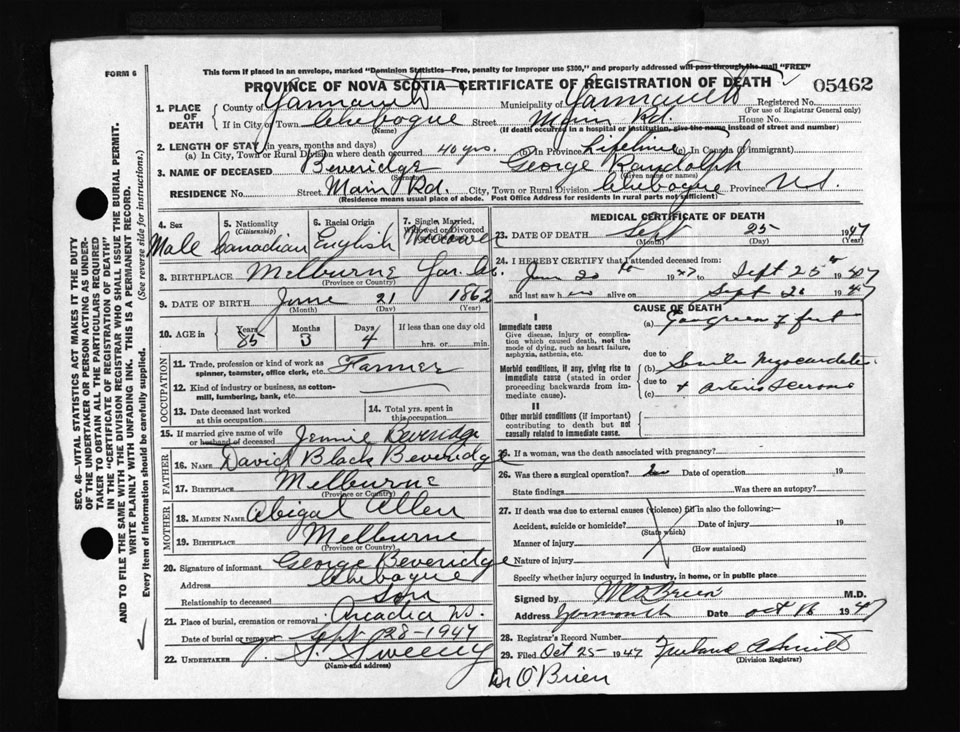 FORM 6
This form if placed in an envelope, marked "Dominion Statistics—Free, penalty for improper use $300," and properly addressed will pass through the mail "FREE"
PROVINCE OF NOVA SCOTIA—CERTIFICATE OF REGISTRATION OF DEATH
05462
1. PLACE OF DEATH
County of Yarmouth Municipality of Yarmouth Registered No.
(For use of Registrar General only)
If in City or Town Chebogue Street Main Rd. House No.
(Name) (If death occurred in a hospital or institution, give the name instead of street and number)
2. LENGTH OF STAY (in years, months and days)
(a) In City, Town or Rural Division where death occurred 40 yrs. (b) In Province Lifetime (c) In Canada (if immigrant)
3. NAME OF DECEASED Beveridge George Randolph
(Surname) (Given name or names)
RESIDENCE No. Street Main Rd. City, Town or Rural Division Chebogue Province N.S.
(Residence means usual place of abode. Post Office Address for residents in rural parts not sufficient)
4. Sex 5. Nationality (Citizenship) 6. Racial Origin 7. Single, Married, Widowed or Divorced
Male Canadian English Widower
8. BIRTHPLACE Melburne Yar. Co.
(Province or Country)
9. DATE OF BIRTH June 21 1862
(Month) (Day) (Year)
10. AGE in Years Months Days If less than one day old
85 3 4 hrs. or min.
OCCUPATION
11. Trade, profession or kind of work as spinner, teamster, office clerk, etc. Farmer
12. Kind of industry or business, as cotton-mill, lumbering, bank, etc.
13. Date deceased last worked at this occupation
14. Total yrs. spent in this occupation
15. If married give name of wife or husband of deceased Jennie Beveridge
FATHER
16. NAME David Black Beveridge
17. BIRTHPLACE Melburne
(Province or Country)
MOTHER
18. MAIDEN NAME Abigal Allen
19. BIRTHPLACE Melburne
(Province or Country)
20. Signature of informant George Beveridge
Address Chebogue
Relationship to deceased Son
21. Place of burial, cremation or removal Arcadia N.S.
Date of burial or removal Sept 28-1947
22. UNDERTAKER S. Sweeny
(Name and address)
MEDICAL CERTIFICATE OF DEATH
23. DATE OF DEATH Sept 25 1947
(Month) (Day) (Year)
24. I HEREBY CERTIFY that I attended deceased from:
June 20th 1947 to Sept 25th 1947
and last saw h im alive on Sept 20 1947
CAUSE OF DEATH
I
Immediate cause
Give disease, injury or complication which caused death, not the mode of dying, such as heart failure, asphyxia, asthenia, etc.
(a) Gangreen of feet
due to
Morbid conditions, if any, giving rise to immediate cause (stated in order proceeding backwards from immediate cause).
(b) Senile
due to
(c) + Arterio
II
Other morbid conditions (if important) contributing to death but not causally related to immediate cause.
25. If a woman, was the death associated with pregnancy?
26. Was there a surgical operation? Date of operation 19
State findings Was there an autopsy?
27. If death was due to external causes (violence) fill in also the following:
Accident, suicide or homicide? Date of injury 19
(State which)
Manner of injury
(How sustained)
Nature of injury
Specify whether injury occurred in industry, in home, or in public place
Signed by O'Brien M.D.
Address Yarmouth Date Oct 16 1947
28. Registrar's Record Number
29. Filed Oct 25- 1947
(Division Registrar)
Dr O'Brien
SEC. 46—VITAL STATISTICS ACT MAKES IT THE DUTY
OF THE UNDERTAKER OR PERSON ACTING AS UNDER-
TAKER TO OBTAIN ALL THE PARTICULARS REQUIRED
IN THE "CERTIFICATE OF REGISTRATION OF DEATH"
AND TO FILE THE SAME WITH THE DIVISION REGISTRAR WHO SHALL ISSUE THE BURIAL PERMIT.
WRITE PLAINLY WITH UNFADING INK. THIS IS A PERMANENT RECORD.
Every item of information should be carefully supplied. (See reverse side for instructions.)